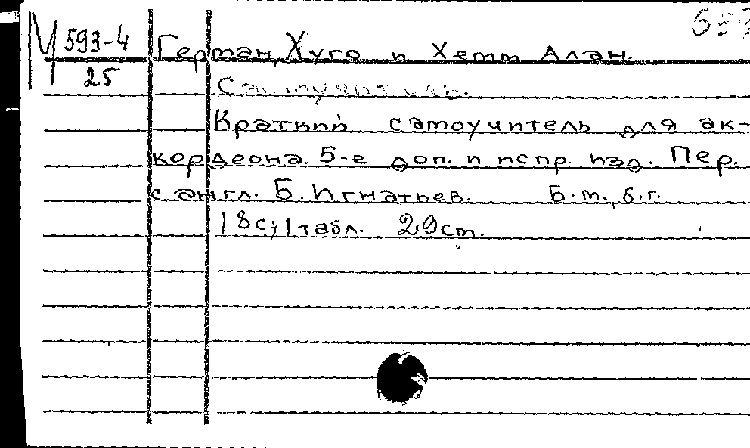 М 593-4 Герман, Хуго и Хетт Алан.
25
Краткий самоучитель для ак-
кордеона. 5-е доп. и испр. изд. Пер.
с англ. Б. Игнатьев. Б.м., б.г.
18с; 1табл. 29см.